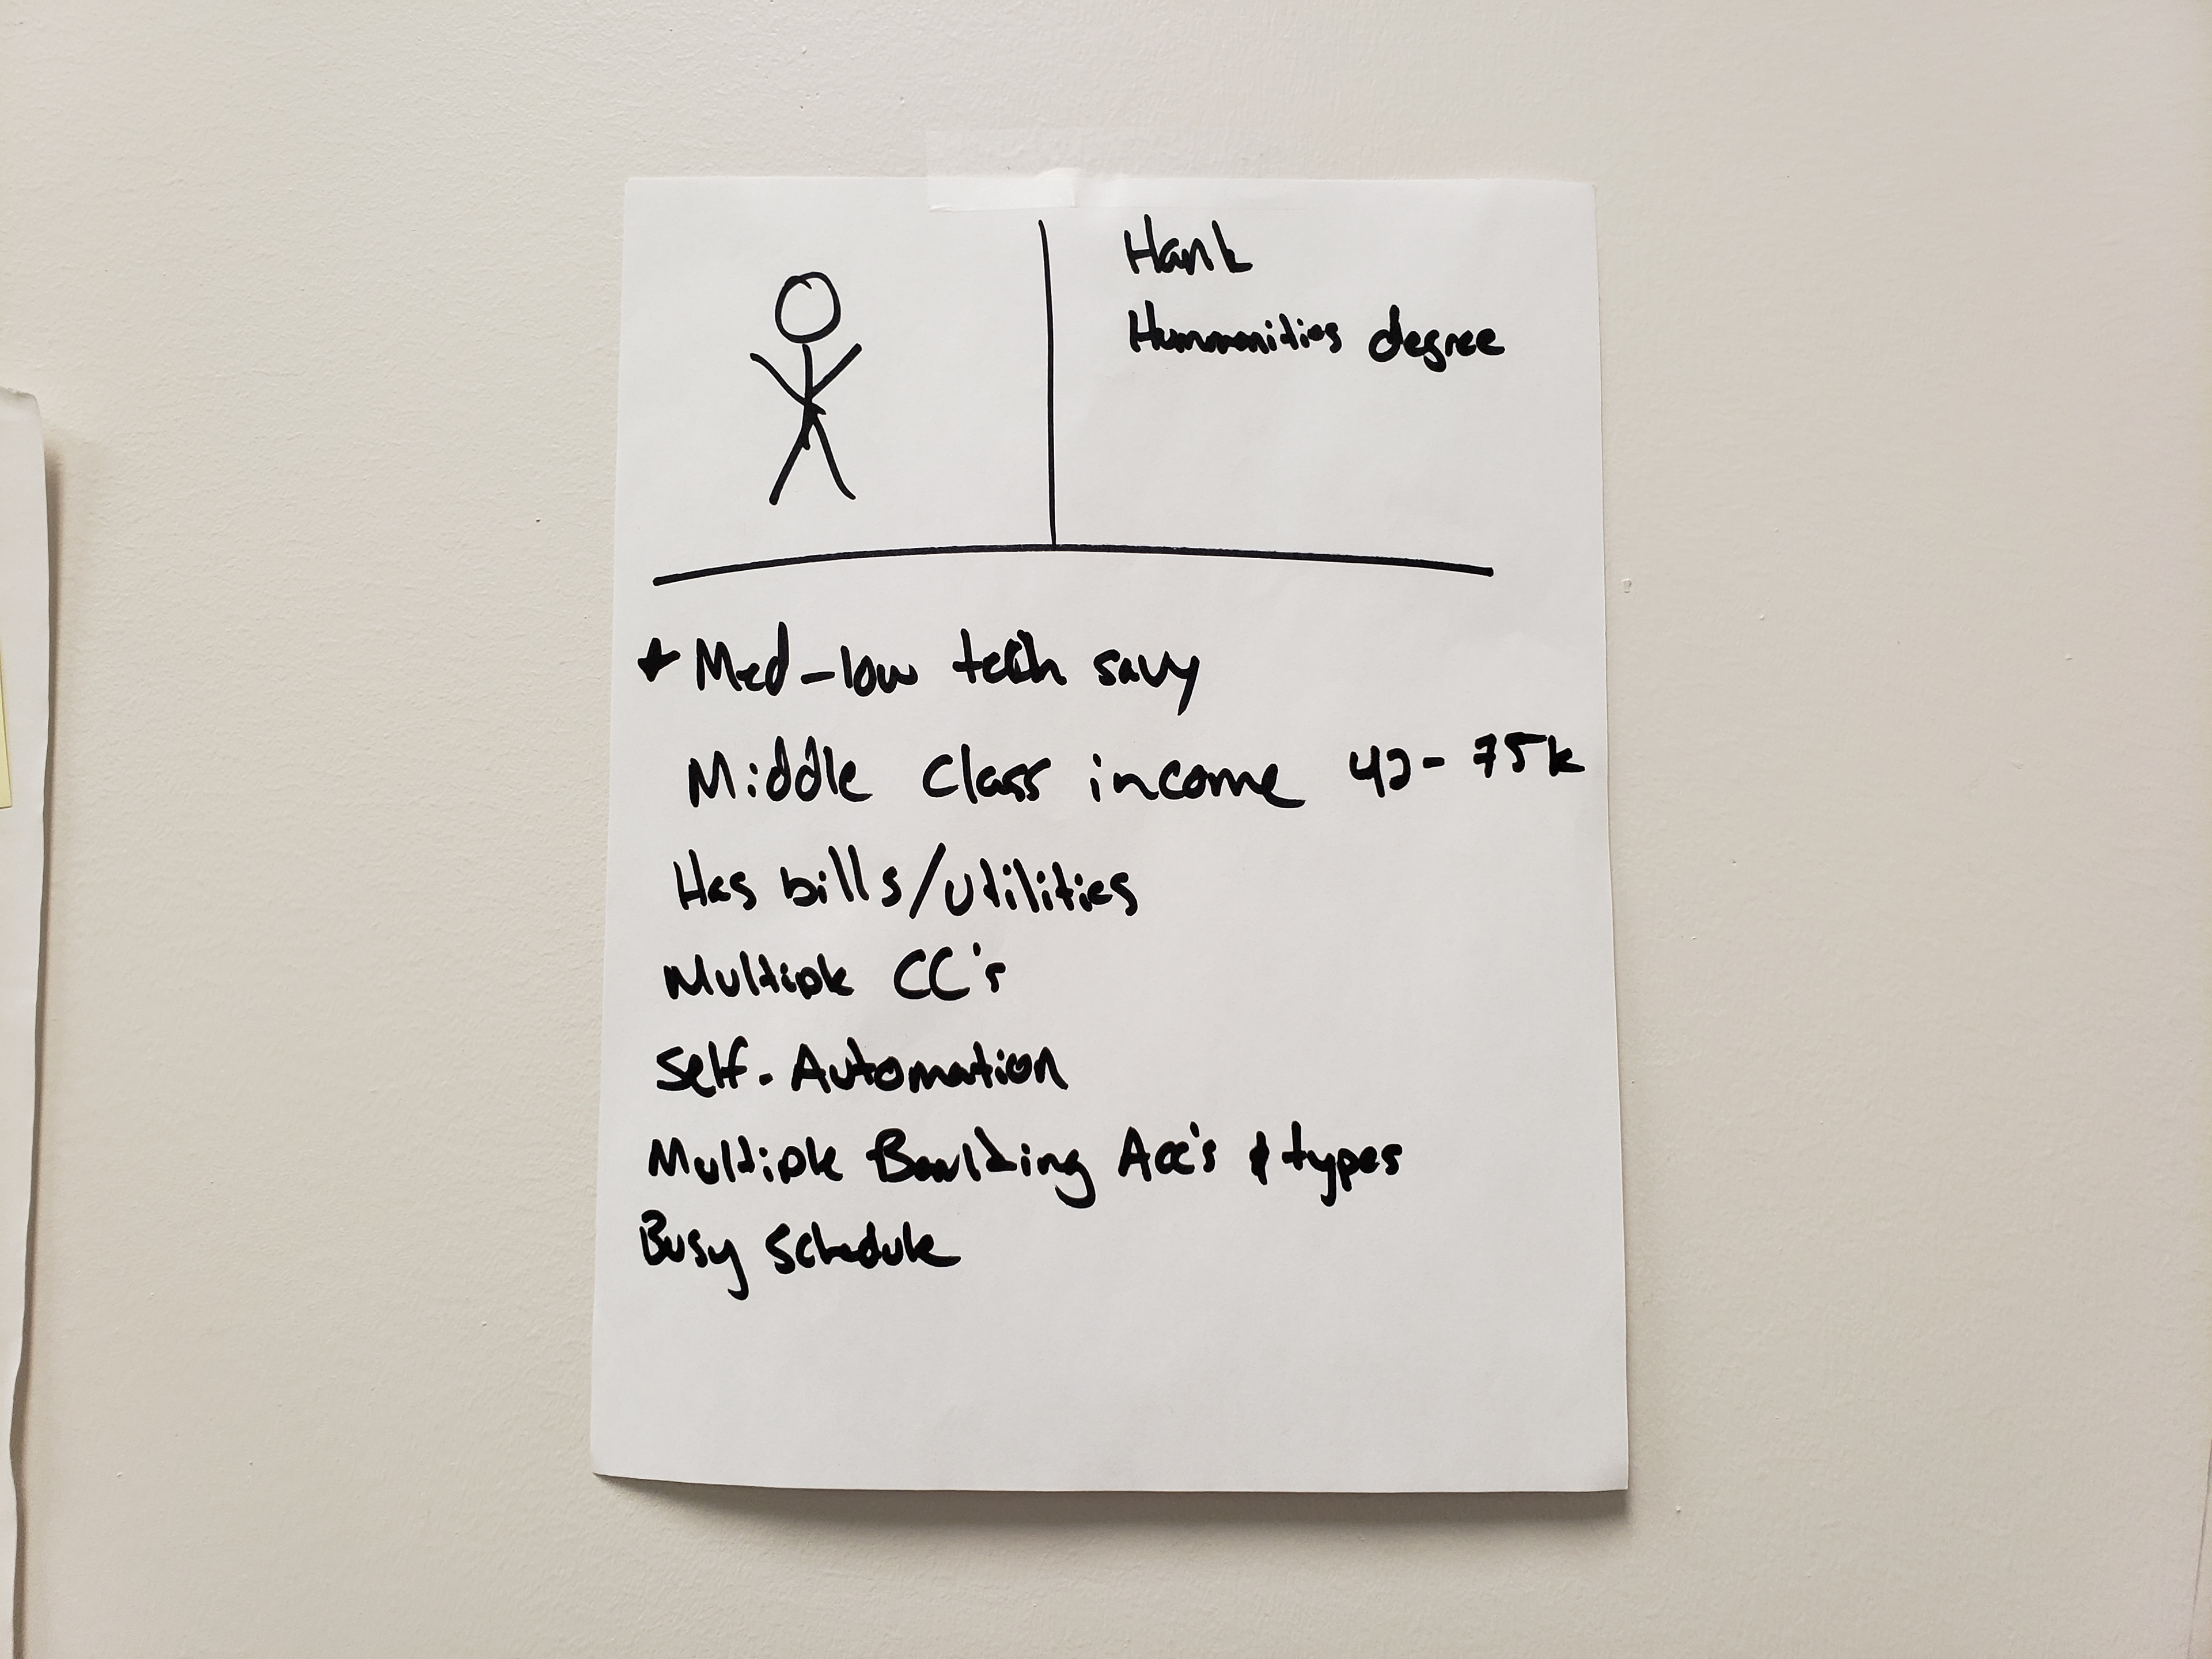 Hank
Hummanities degree
★ Med-low tech savy
Middle class income 42-75k
Has bills/utilities
Multiple CC's
Self-Automation
Multiple Acc's & types
Busy Schedule